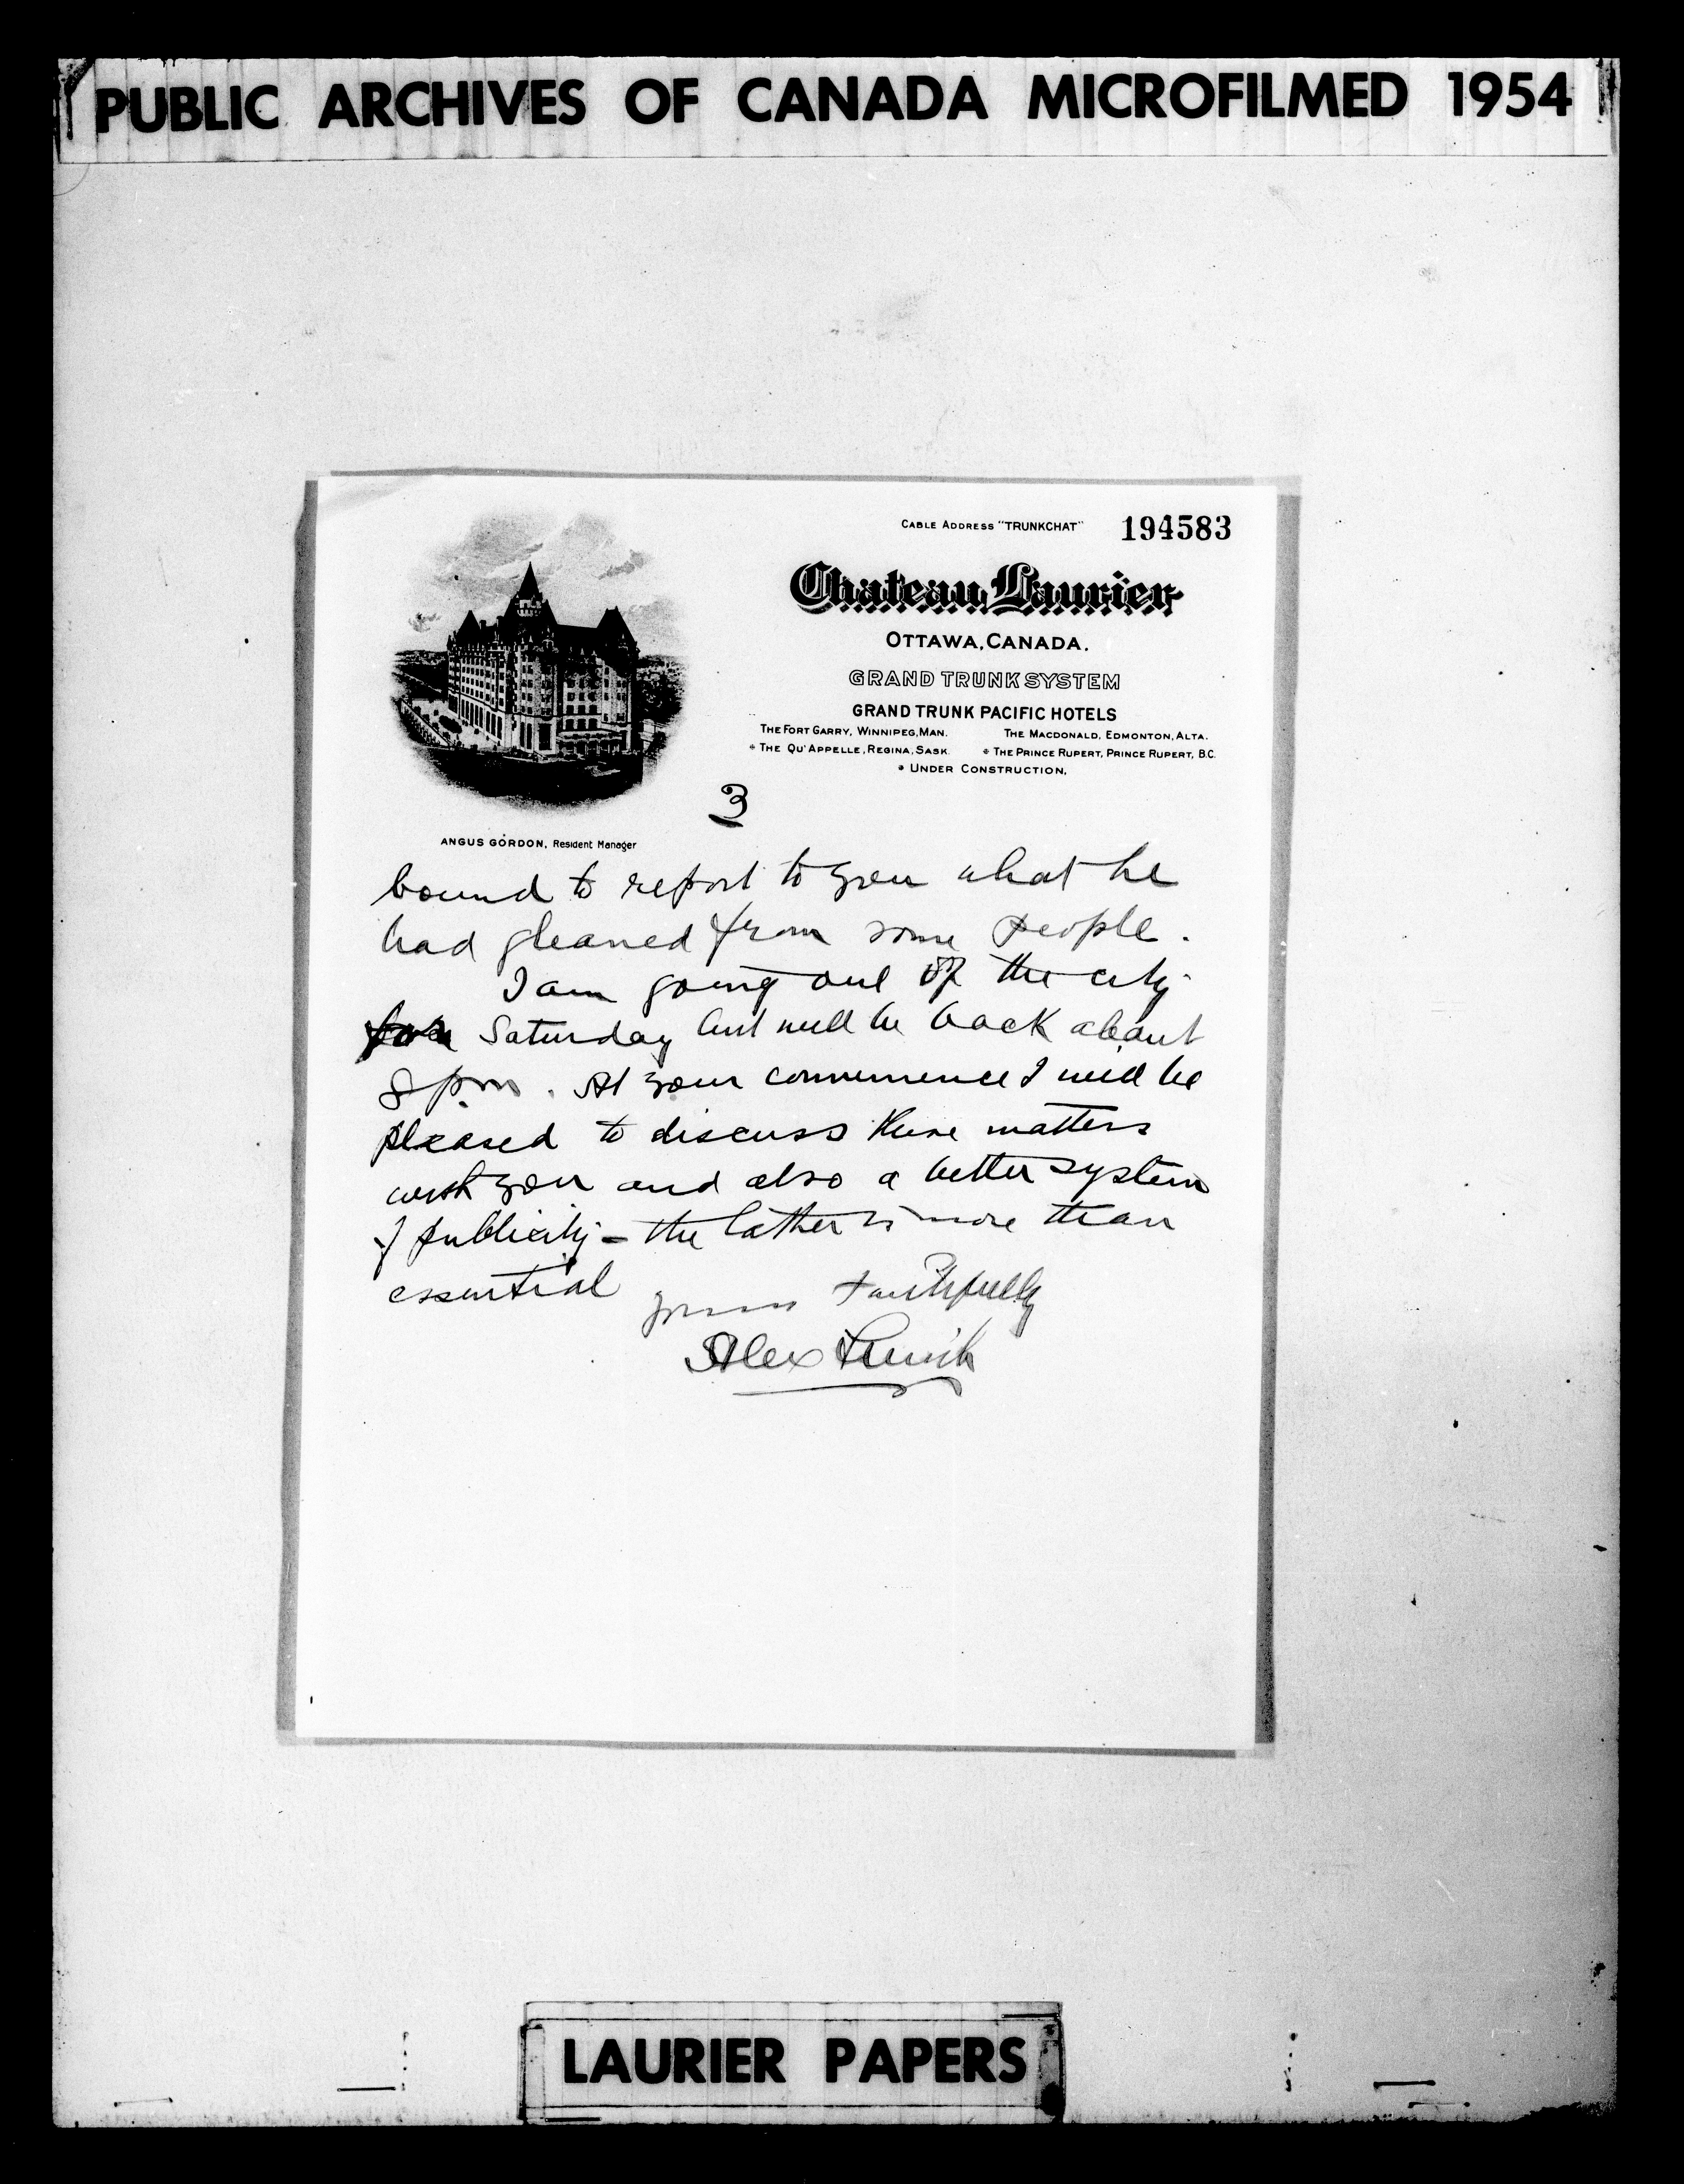 PUBLIC ARCHIVES OF CANADA MICROFILMED 1954
CABLE ADDRESS "TRUNKCHAT"
194583
Chateau Laurier
OTTAWA, CANADA.
GRAND TRUNK SYSTEM
GRAND TRUNK PACIFIC HOTELS
THE FORT GARRY, WINNIPEG, MAN. THE MACDONALD, EDMONTON, ALTA.
* THE QU'APPELLE, REGINA, SASK. * THE PRINCE RUPERT, PRINCE RUPERT, B.C.
* UNDER CONSTRUCTION.
3
ANGUS GORDON, Resident Manager
bound to report to you what he
had gleaned from some people.
I am going out of the city
Saturday but will be back about
8 pm. At your convenience I will be
pleased to discuss these matters
with you and also a better system
of publicity - the latter is more than
essential
yours faithfully
Alex
LAURIER PAPERS